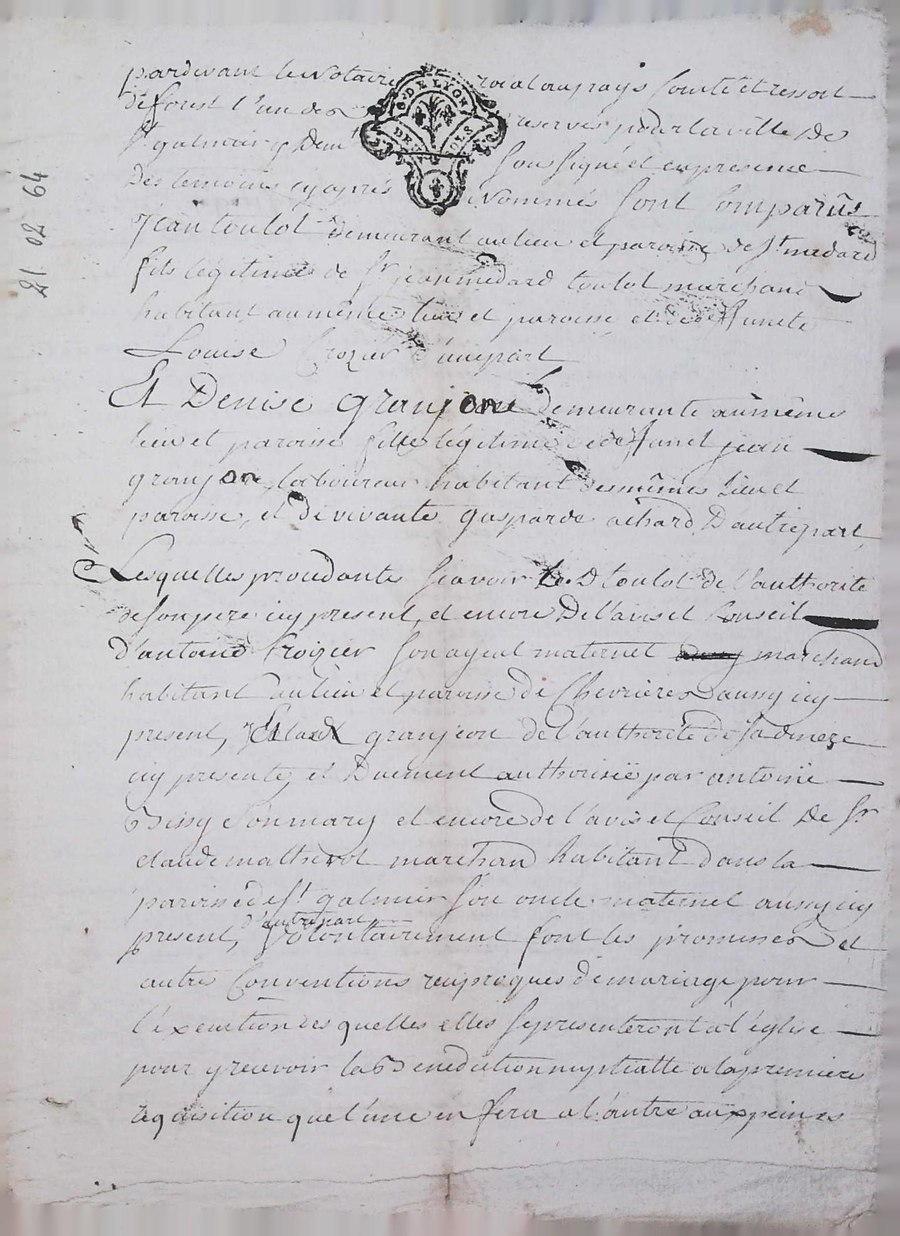 pardevant le Notaire roial au pays Comté et ressort
de forest l'un des reserves pour la ville de
G. DE LYON
DEUX SOLS
St galmier y Demt sousigné et en presence
des temoins cy apres Nommés sont Comparûs
21 02 64
Jean toulot demeurant au lieu et paroisse de St medard
fils légitime de Sr jean medard toulot marchand
habitant au même lieu et paroisse et de deffunte
Louise Crozier d'une part
Et Denise granjon demeurante au même
lieu et paroisse fille légitime de deffunct jean
granjon laboureur habitant des mêmes lieu et
paroisse, et de vivante gasparde achard D'autre part,
Lesquelles procedantes scavoir le D toulot de l'authorité
de son pere icy present, et encore De l'avis et Conseil
d'antoine Croizier son ayeul maternel marchand
habitant au lieu et paroisse de Chevrières aussy icy
present, Et lad granjeon de l'authorité de sa mere
icy presente, et Duement authorisée par antoine
Bissy son mary et encore de l'avis et Conseil De Sr
claude matherot marchand habitant dans la
paroisse de St galmier son oncle maternel aussy icy
present, d'autre part volontairement font les promesses et
autres Conventions reciproques de mariage pour
l'execution des quelles elles se presenteront a l'église
pour y recevoir la Benediction nuptialle a la premiere
requisition que l'une en fera a l'autre aux peines